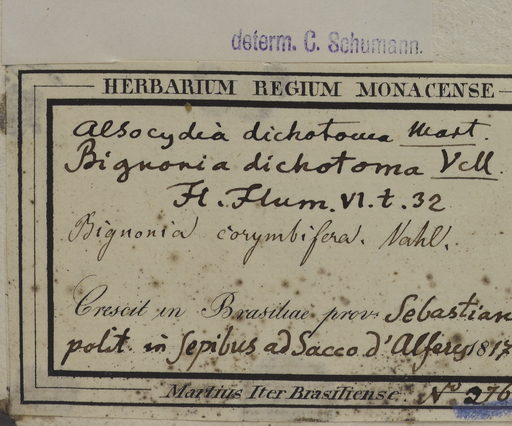 determ. C. Schumann.
HERBARIUM REGIUM MONACENSE
Alsocydia dichotoma Mart.
Bignonia dichotoma Vell.
Fl. Flum. VI. t. 32
Bignonia corymbifera. Vahl.
Crescit in Brasiliae prov. Sebastian
polit. in sepibus ad Sacco d'Alferes 1817
Martius Iter Brasiliense. No 276